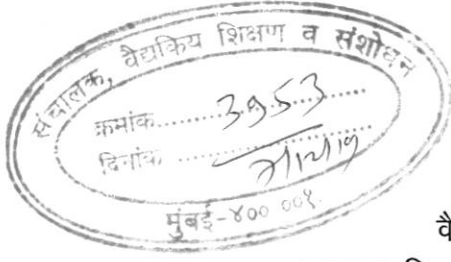 संचालक, वैद्यकिय शिक्षण व संशोधन
क्रमांक.......3953.......
दिनांक ..................
मुंबई-४०० ००१.
वै